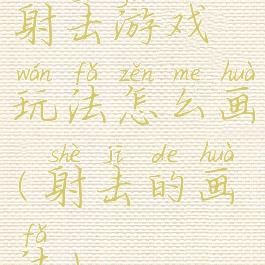 射击游戏
wán fǎ zěn me huà
玩法怎么画
shè jī de huà
(射击的画
fǎ
法)